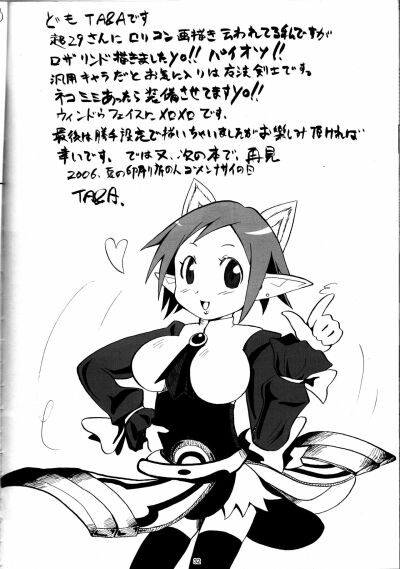 ども TARAです
超29さんに ロリコン画描き 云われてるんですが
ロザリンド描きましたyo!! パイオツ!!
汎用キャラだとお気に入りは魔法剣士です。
ネコミミあったら装備させてますyo!!
ウィンドゥフェイスに XOXOです.
最後は勝手設定で描いちゃいましたがお楽しみ頂ければ
幸いです。では又、次の本で、再見
2006. 夏の印刷所の人ゴメンナサイの日
TARA.
32